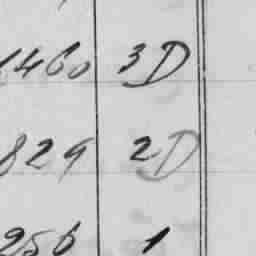 1460 3D
829 2D
256 1